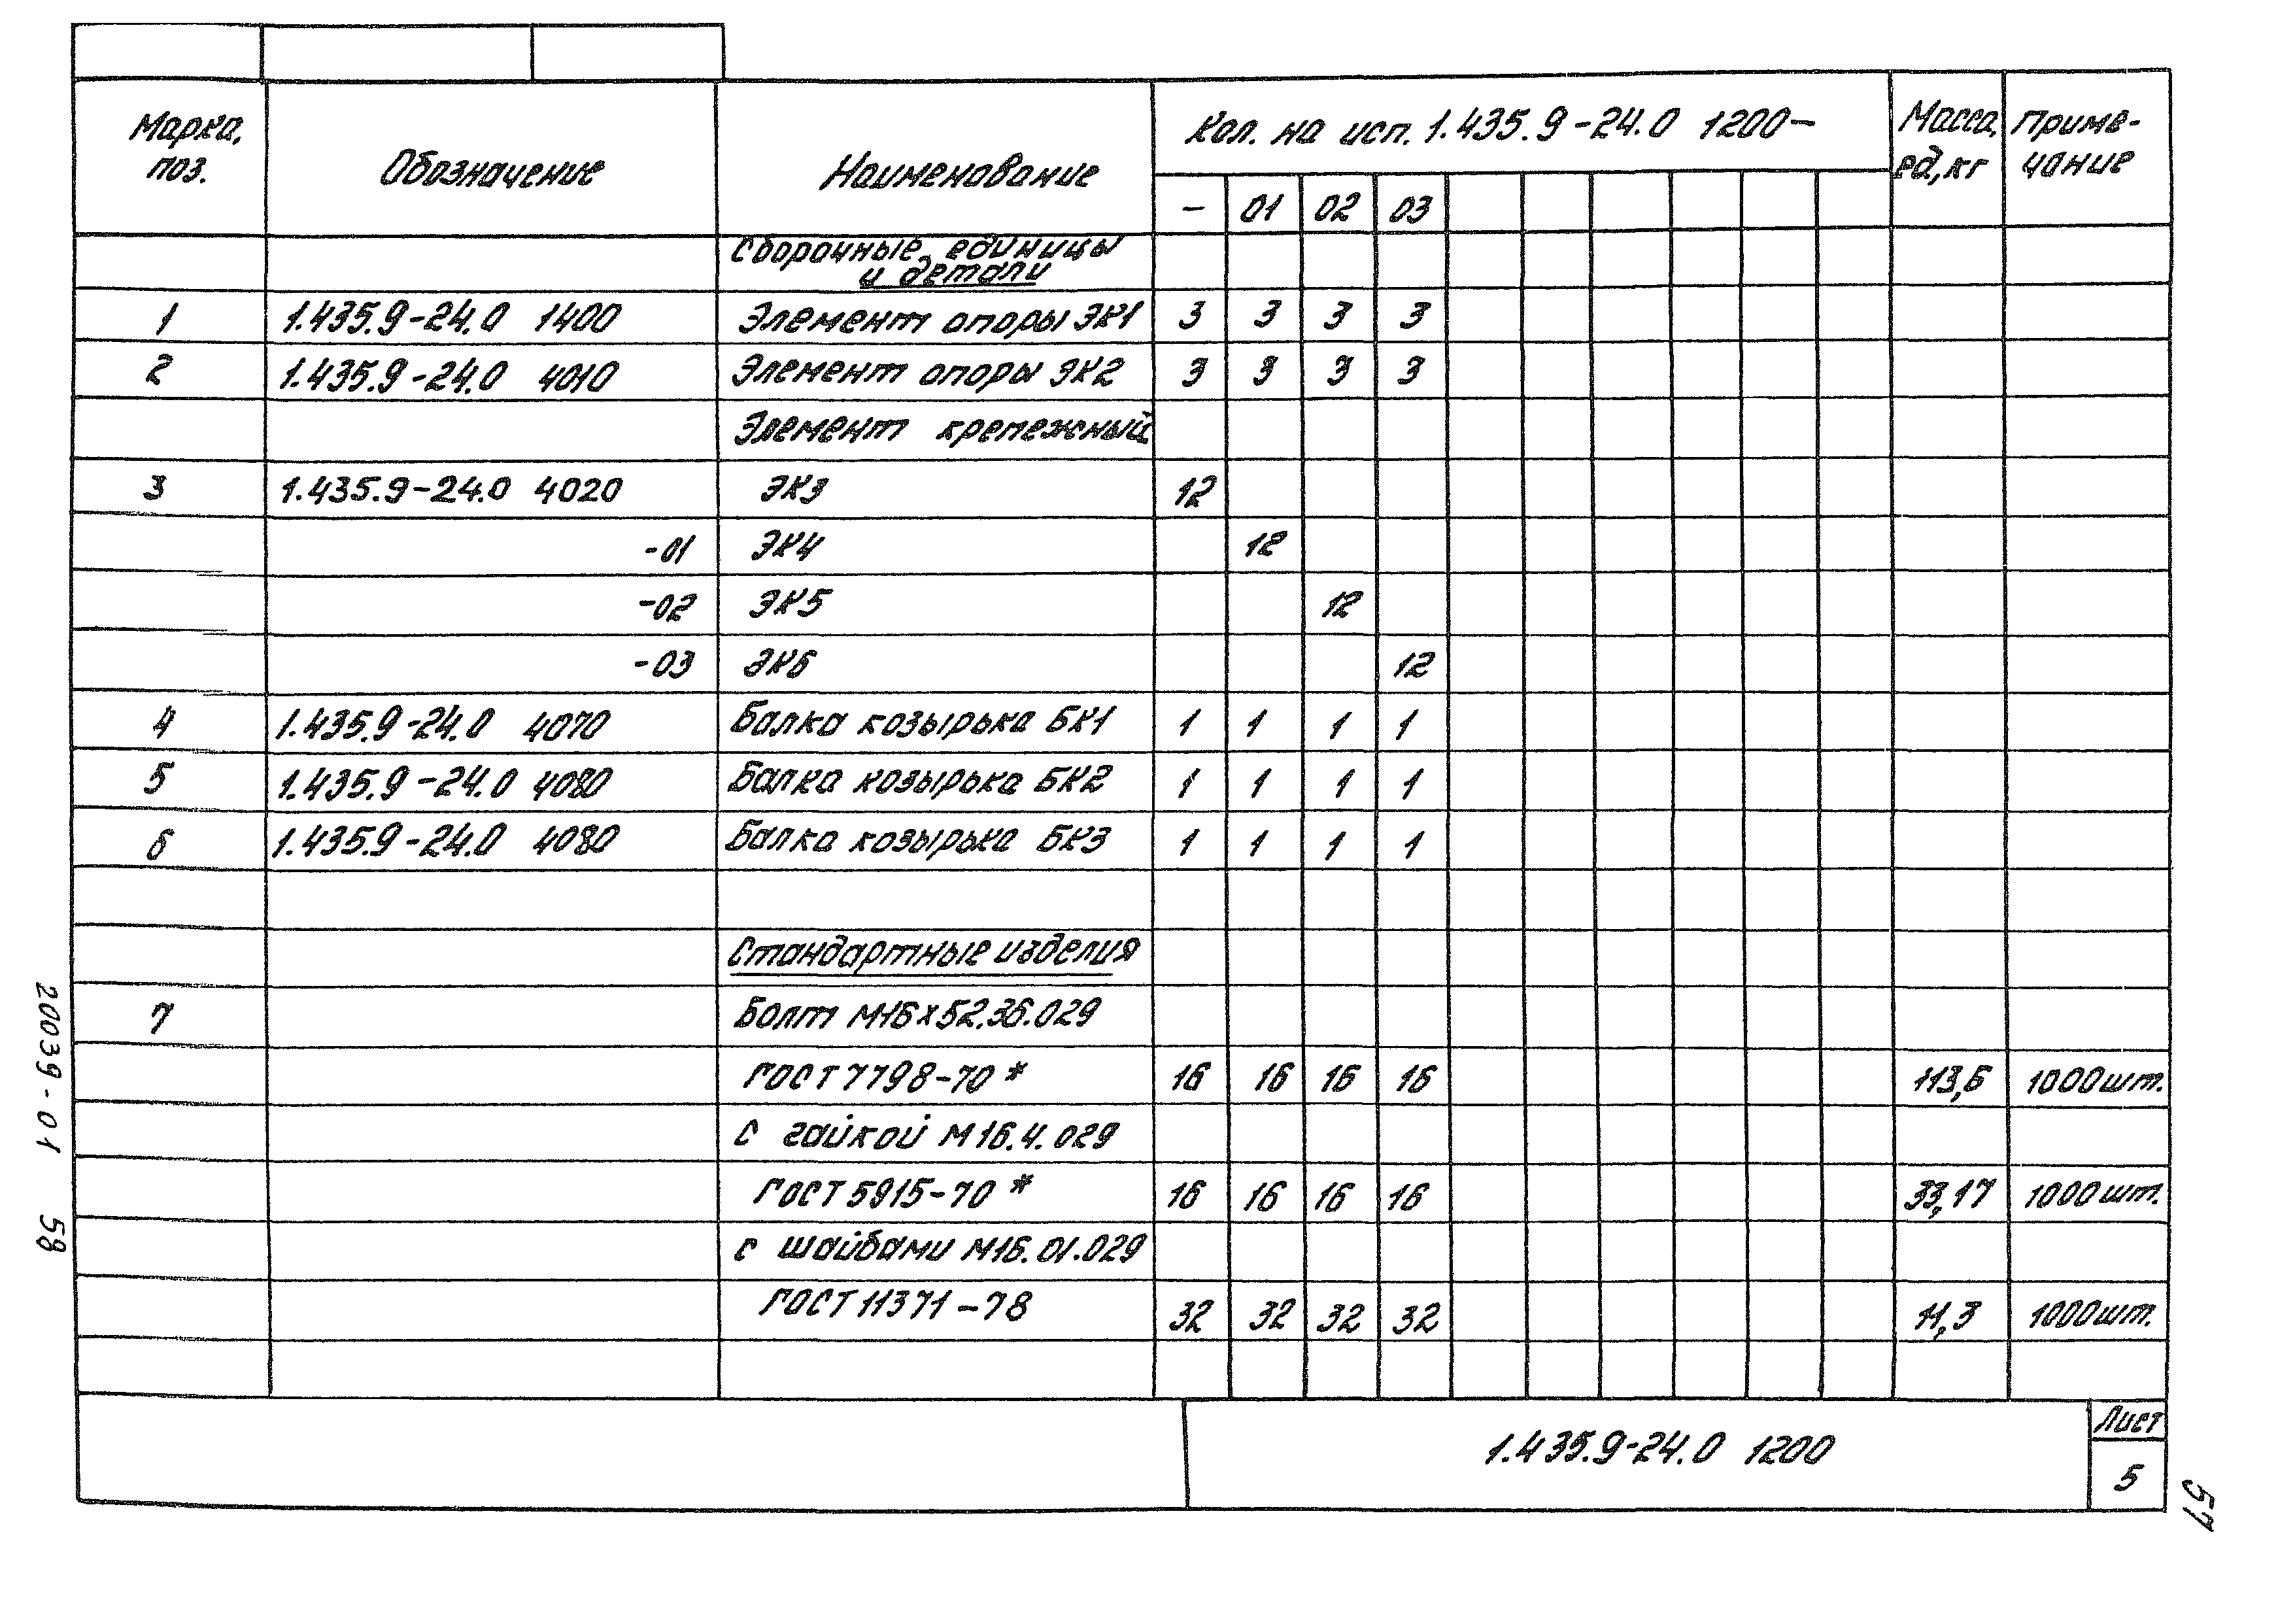 Марка, поз. Обозначение Наименование Кол. на исп. 1.435.9-24.0 1200- Масса, ед, кг Приме-чание
- 01 02 03
Сборочные единицы
и детали
1 1.435.9-24.0 1400 Элемент опоры ЭК1 3 3 3 3
2 1.435.9-24.0 4010 Элемент опоры ЭК2 3 3 3 3
Элемент крепежный
3 1.435.9-24.0 4020 ЭК3 12
-01 ЭК4 12
-02 ЭК5 12
-03 ЭК6 12
4 1.435.9-24.0 4070 Балка козырька БК1 1 1 1 1
5 1.435.9-24.0 4080 Балка козырька БК2 1 1 1 1
6 1.435.9-24.0 4080 Балка козырька БК3 1 1 1 1
Стандартные изделия
7 Болт М16х52.36.029
ГОСТ 7798-70* 16 16 16 16 113,6 1000шт.
с гайкой М16.4.029
ГОСТ 5915-70* 16 16 16 16 33,17 1000шт.
с шайбами М16.01.029
ГОСТ 11371-78 32 32 32 32 11,3 1000шт.
1.435.9-24.0 1200
Лист
5
20039-01 58
57